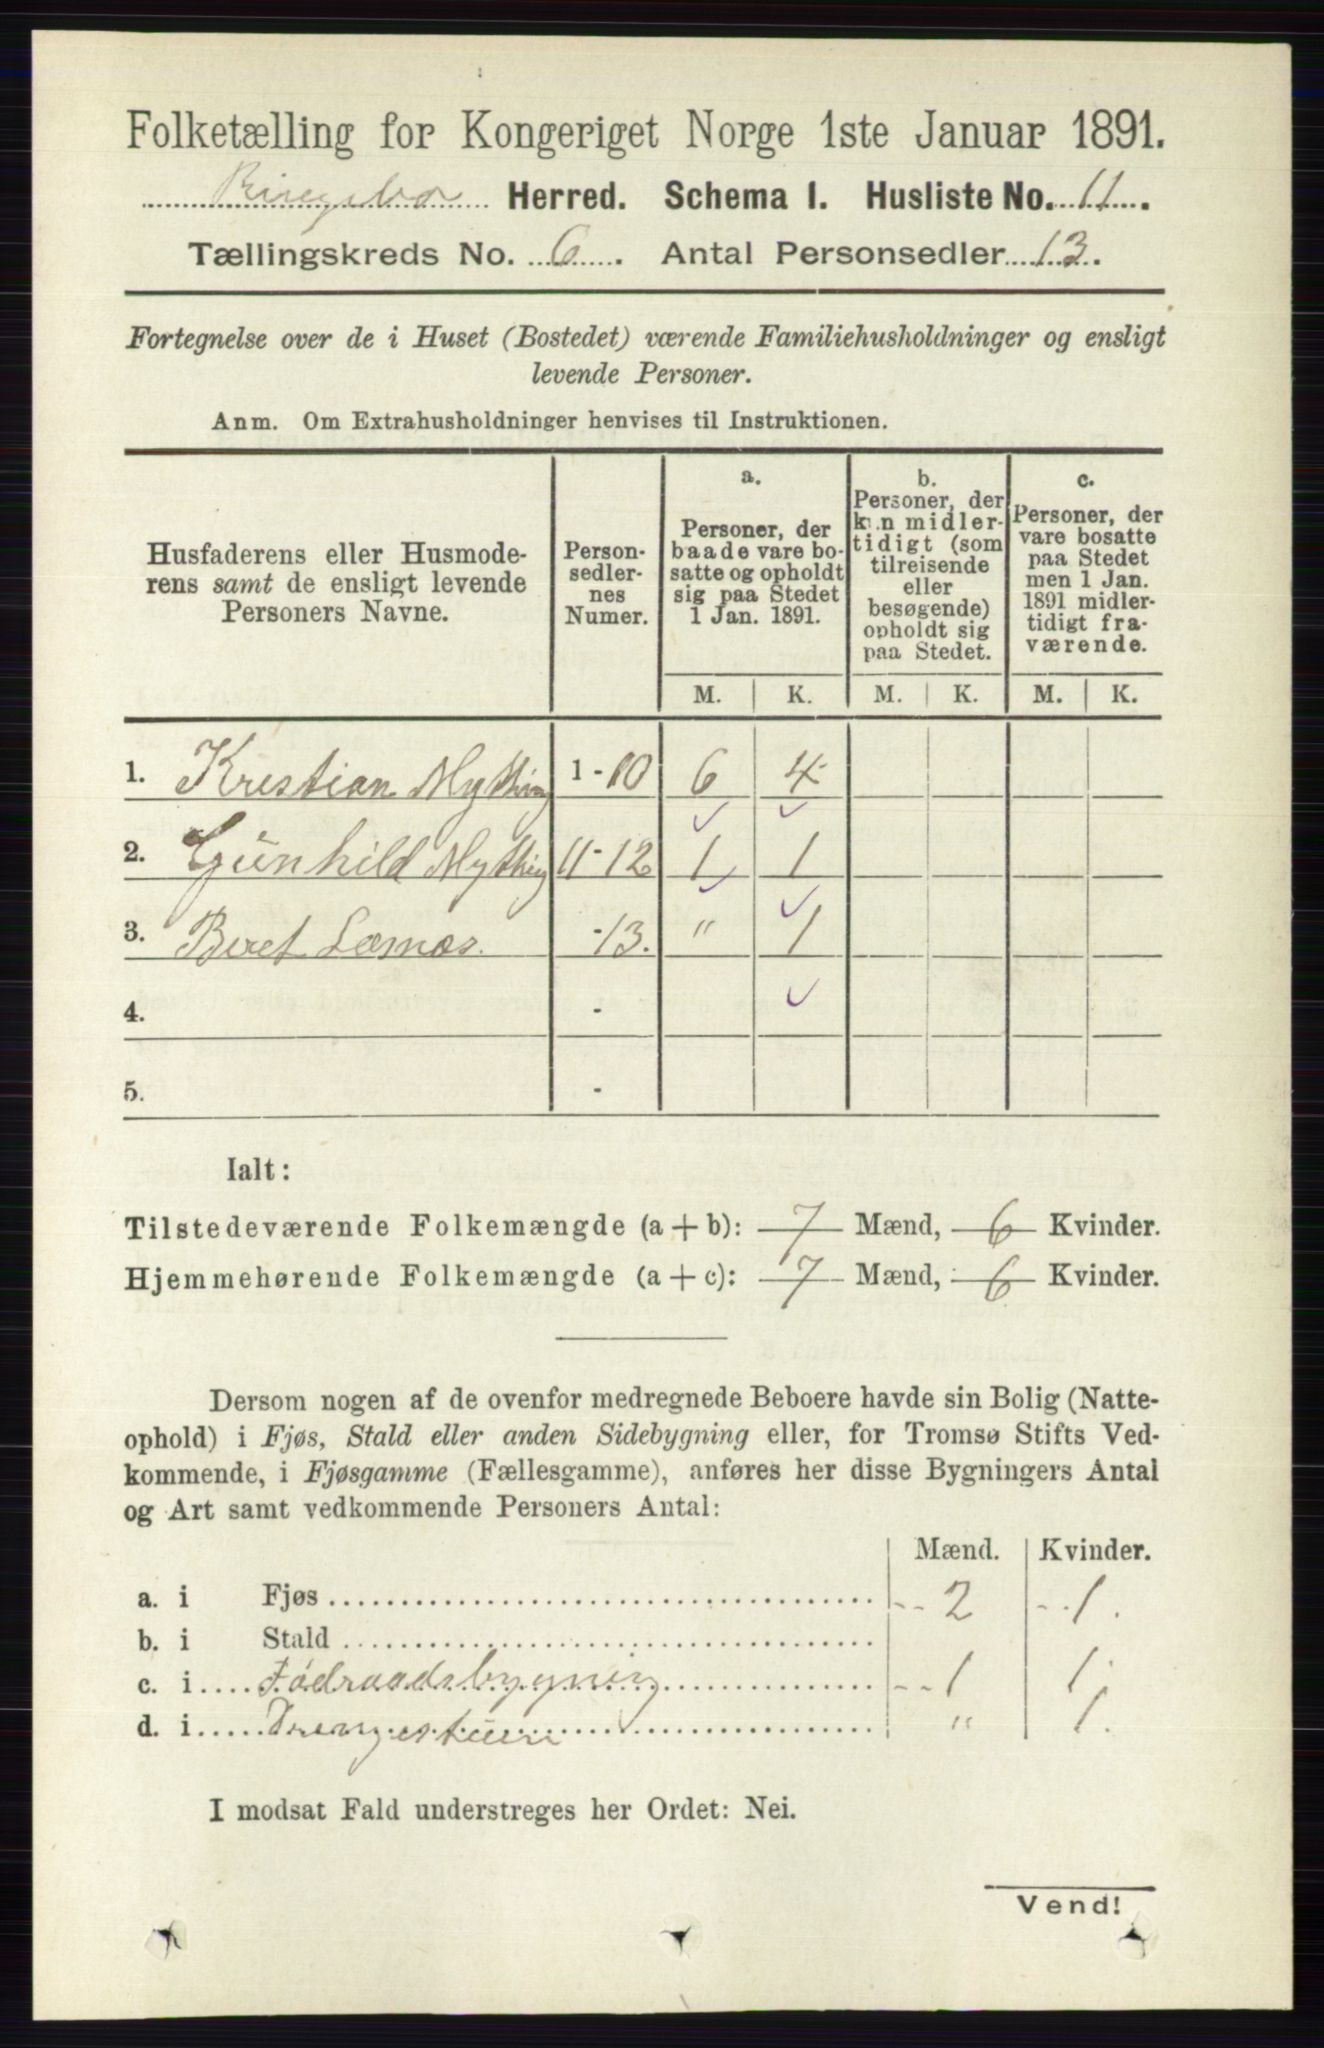 Folketælling for Kongeriget Norge 1ste Januar 1891.
Ringebo Herred. Schema I. Husliste No. 11.
Tællingskreds No. 6. Antal Personsedler 13.
Fortegnelse over de i Huset (Bostedet) værende Familiehusholdninger og ensligt
levende Personer.
Anm. Om Extrahusholdninger henvises til Instruktionen.
Husfaderens eller Husmode-
rens samt de ensligt levende
Personers Navne.
Person-
sedler-
nes
Numer.
a.
Personer, der
baade vare bo-
satte og opholdt
sig paa Stedet
1 Jan. 1891.
b.
Personer, der
kun midler-
tidigt (som
tilreisende
eller
besøgende)
opholdt sig
paa Stedet.
c.
Personer, der
vare bosatte
paa Stedet
men 1 Jan.
1891 midler-
tidigt fra-
værende.
M. K. M. K. M. K.
1. Kristian Mytting 1-10 6 4
2. Gunhild Mytting 11-12 1 1
3. Beret -13. " 1
4. -
5. -
Ialt:
Tilstedeværende Folkemængde (a + b): 7 Mænd, 6 Kvinder.
Hjemmehørende Folkemængde (a + c): 7 Mænd, 6 Kvinder.
Dersom nogen af de ovenfor medregnede Beboere havde sin Bolig (Natte-
ophold) i Fjøs, Stald eller anden Sidebygning eller, for Tromsø Stifts Ved-
kommende, i Fjøsgamme (Fællesgamme), anføres her disse Bygningers Antal
og Art samt vedkommende Personers Antal:
Mænd. Kvinder.
a. i Fjøs 2 1.
b. i Stald
c. i Födraadsbygning 1 1
d. i Drengestuen " 1.
I modsat Fald understreges her Ordet: Nei.
Vend!